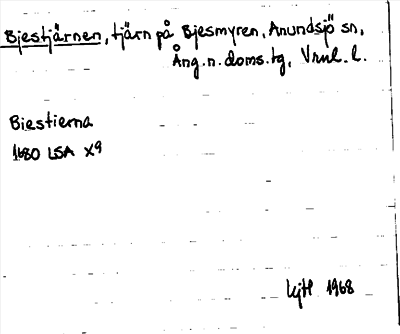 Bjestjärnen, tjärn på Bjesmyren, Anundsjö sn,
Ång.n.doms.tg, Vrml. l.
Biestierna
1680 LSA X9
1968